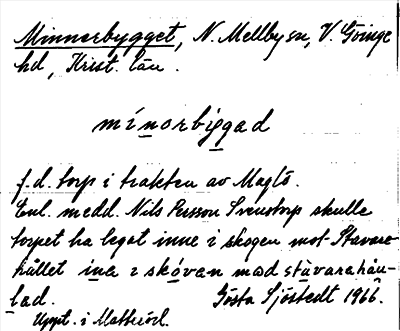 Minnorbygget, N. Mellby sn, V. Göinge
hd, Krist. län.
mínorbiggad
f.d. torp i trakten av Maglö.
Enl. medd. Nils Persson Svenstorp skulle
torpet ha legat inne i skogen mot Stavara-
hållet ina i skóvan mod stàvarahåu-
lad. Gösta Sjöstedt 1966.
Uppt. i Matteröd.